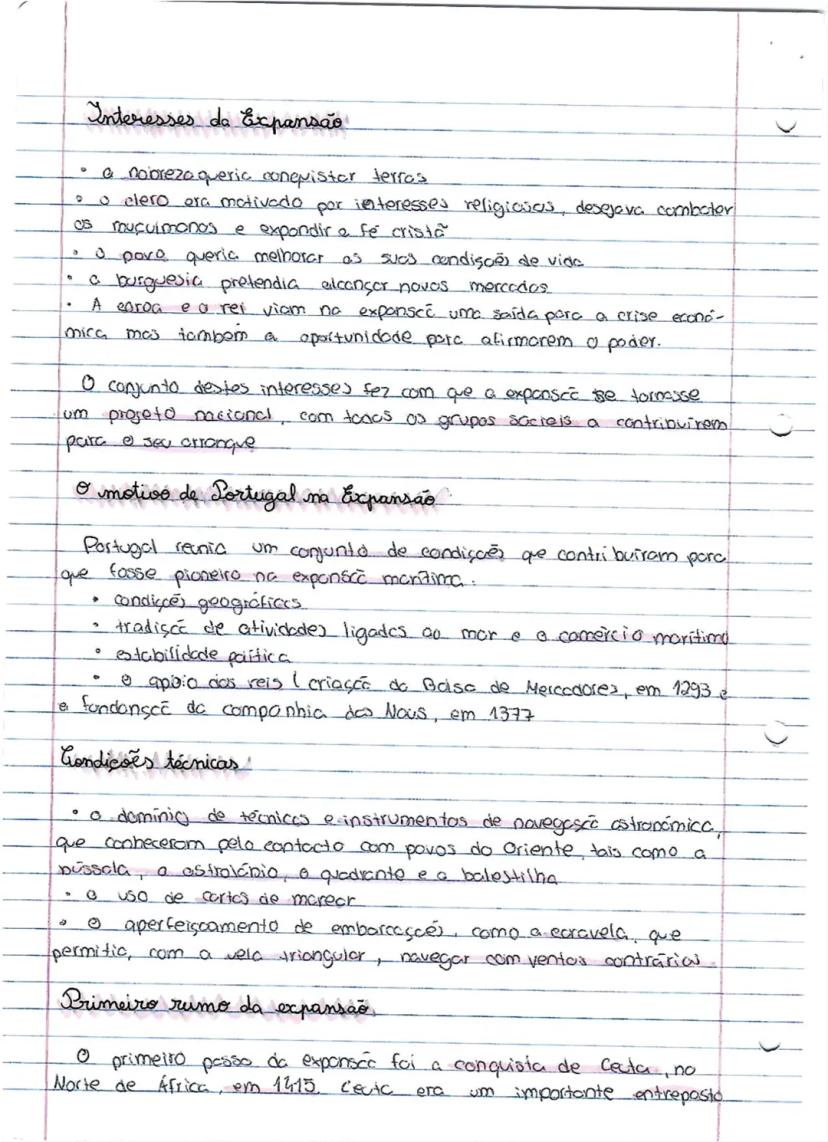 Interesses da Expansão
• a nobreza queria conquistar terras
• o clero era motivado por interesses religiosos, desejava combater
os muçulmanos e expandir a fé cristã
• o povo queria melhorar as suas condições de vida
• a burguesia pretendia alcançar novos mercados
• A coroa e o rei viam na expansão uma saída para a crise econó-
mica mas também a oportunidade para afirmarem o poder.
O conjunto destes interesses fez com que a expansão se tornasse
um projeto nacional, com todos os grupos sociais a contribuírem
para o seu arranque
O motivo de Portugal na Expansão
Portugal reunia um conjunto de condições que contribuíram para
que fosse pioneiro na expansão marítima.
• condições geográficas
• tradição de atividades ligadas ao mar e o comércio marítimo
• estabilidade política
• o apoio dos reis (criação da Bolsa de Mercadores, em 1293 e
a fundanção da companhia das Naus, em 1377
Condições técnicas
• o domínio de técnicas e instrumentos de navegação astronómica,
que conheceram pelo contacto com povos do Oriente, tais como a
bússola, o astrolábio, o quadrante e a balestilha
• o uso de cartas de marear
• O aperfeiçoamento de embarcações, como a caravela, que
permitia, com a vela triangular, navegar com ventos contrários
Primeiro rumo da expansão
O primeiro passo da expansão foi a conquista de Ceuta, no
Norte de África, em 1415. Ceuta era um importante entreposto